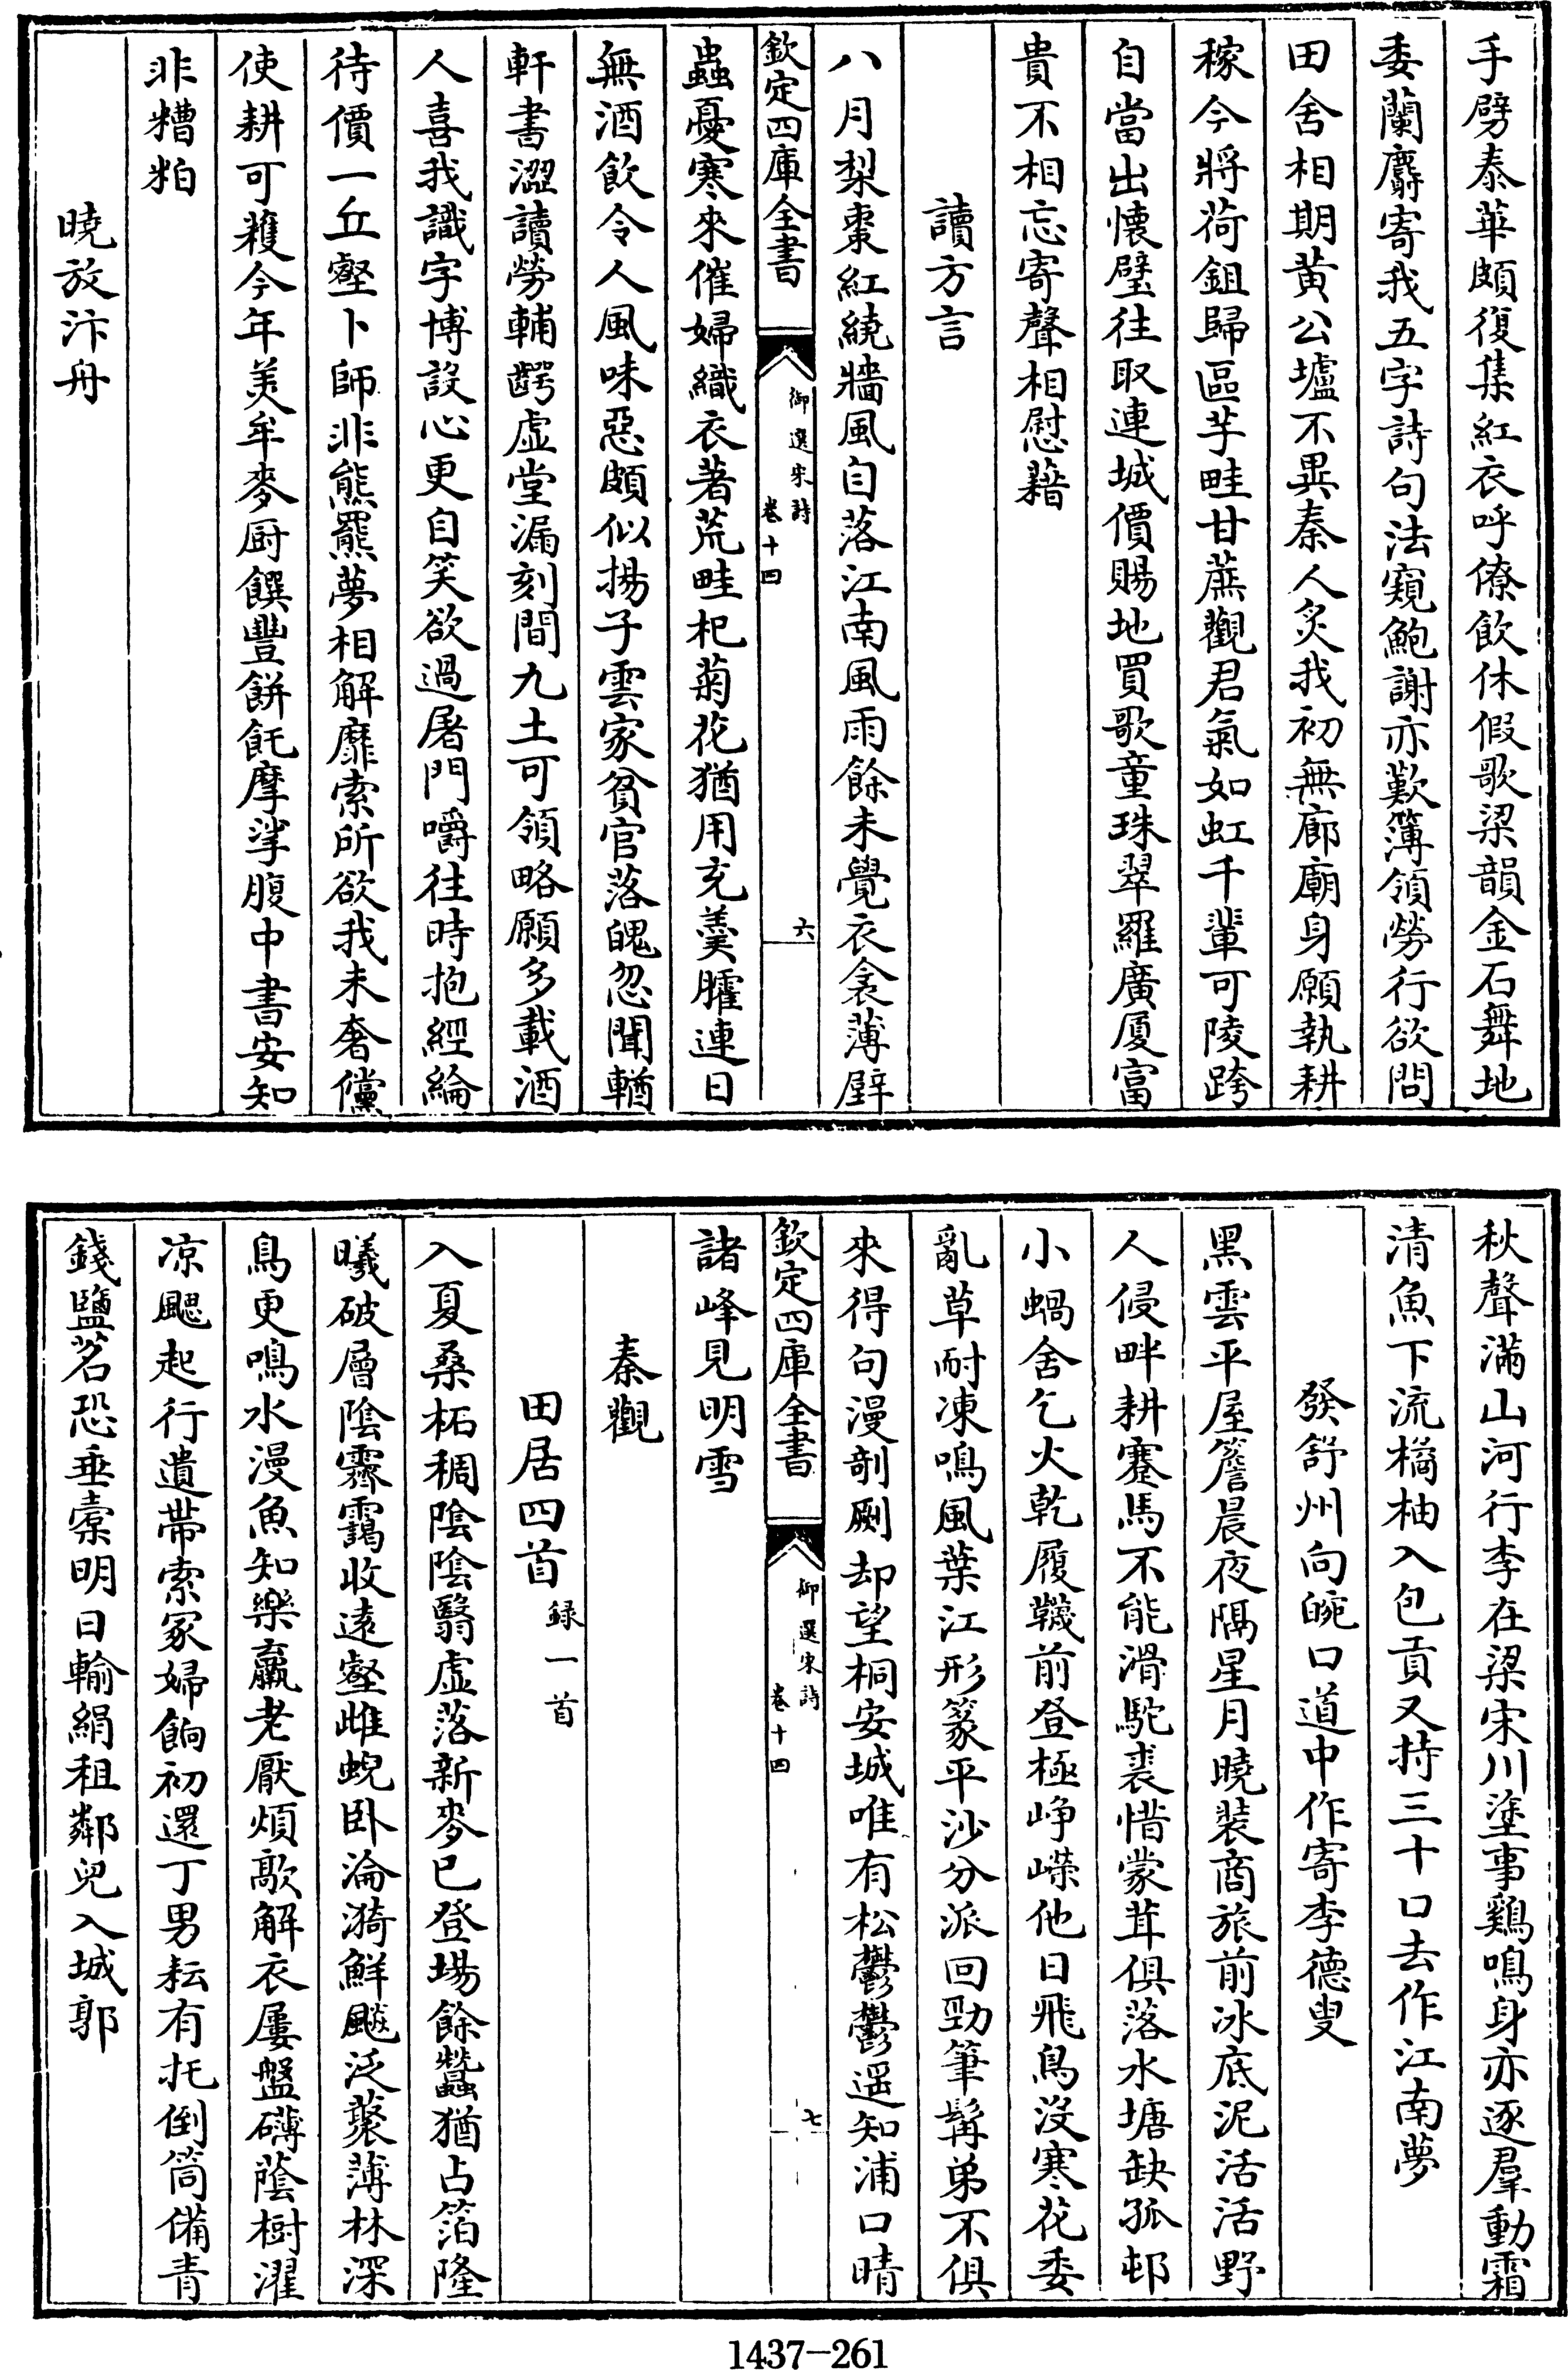 手劈泰華頗復集紅衣呼僚飲休假歌梁韻金石舞地
委蘭麝寄我五字詩句法窺鮑謝亦歎簿領勞行欲問
田舍相期黄公壚不異秦人炙我初無廊廟身願執耕
稼今將荷鉏歸區芋畦甘蔗觀君氣如虹千輩可陵跨
自當出懷璧往取連城價賜地買歌童珠翠羅廣厦富
貴不相忘寄聲相慰藉
讀方言
八月梨棗紅繞牆風自落江南風雨餘未覺衣衾薄壁
欽定四庫全書
御選宋詩
卷十四
六
蟲憂寒來催婦織衣著荒畦杞菊花猶用充羹臛連日
無酒飲令人風味惡頗似揚子雲家貧官落魄忽聞輶
軒書澀讀勞輔齶虚堂漏刻間九土可領略願多載酒
人喜我識字博設心更自笑欲過屠門嚼往時抱經綸
待價一丘壑卜師非熊羆夢相解靡索所欲我未奢儻
使耕可穫今年美牟麥厨饌豐餅飥摩挲腹中書安知
非糟粕
曉放汴舟
秋聲滿山河行李在梁宋川塗事鷄鳴身亦逐羣動霜
清魚下流橘柚入包貢又持三十口去作江南夢
發舒州向皖口道中作寄李德叟
黑雲平屋簷晨夜隔星月曉裝商旅前冰底泥活活野
人侵畔耕蹇馬不能滑駝裘惜蒙茸俱落水塘缺孤邨
小蝸舍乞火乾履韈前登極崢嶸他日飛鳥没寒花委
亂草耐凍鳴風葉江形篆平沙分派回勁筆髯弟不俱
來得句漫剞劂却望桐安城唯有松鬱鬱遥知浦口晴
欽定四庫全書
御選宋詩
卷十四
七
諸峰見明雪
秦觀
田居四首録一首
入夏桑柘稠陰陰翳虚落新麥已登場餘蠶猶占箔隆
曦破層陰霽靄收遠壑雌蜺卧淪漪鮮飈泛藂薄林深
鳥更鳴水漫魚知樂羸老厭煩歊解衣屢盤礴蔭樹濯
凉颸起行遺帶索冢婦餉初還丁男耘有托倒筒備青
錢鹽茗恐垂橐明日輸絹租鄰兒入城郭
1437-261